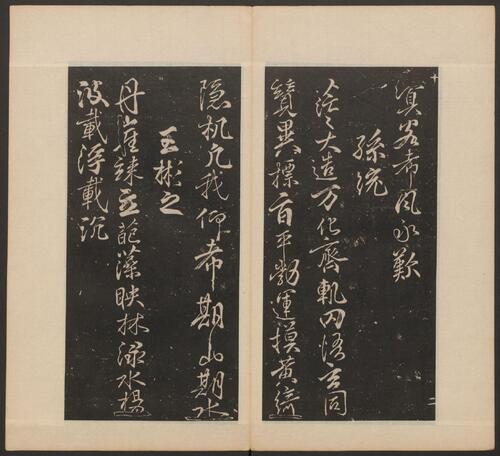 嘉客希風永歎
孫統
茫〻大造万化齊軌罔悟玄同
競異標旨平勃運摸黃綺
隱机凡我仰希期山期水
王彬之
丹崖竦立葩藻映林淥水揚
波載浮載沉
二